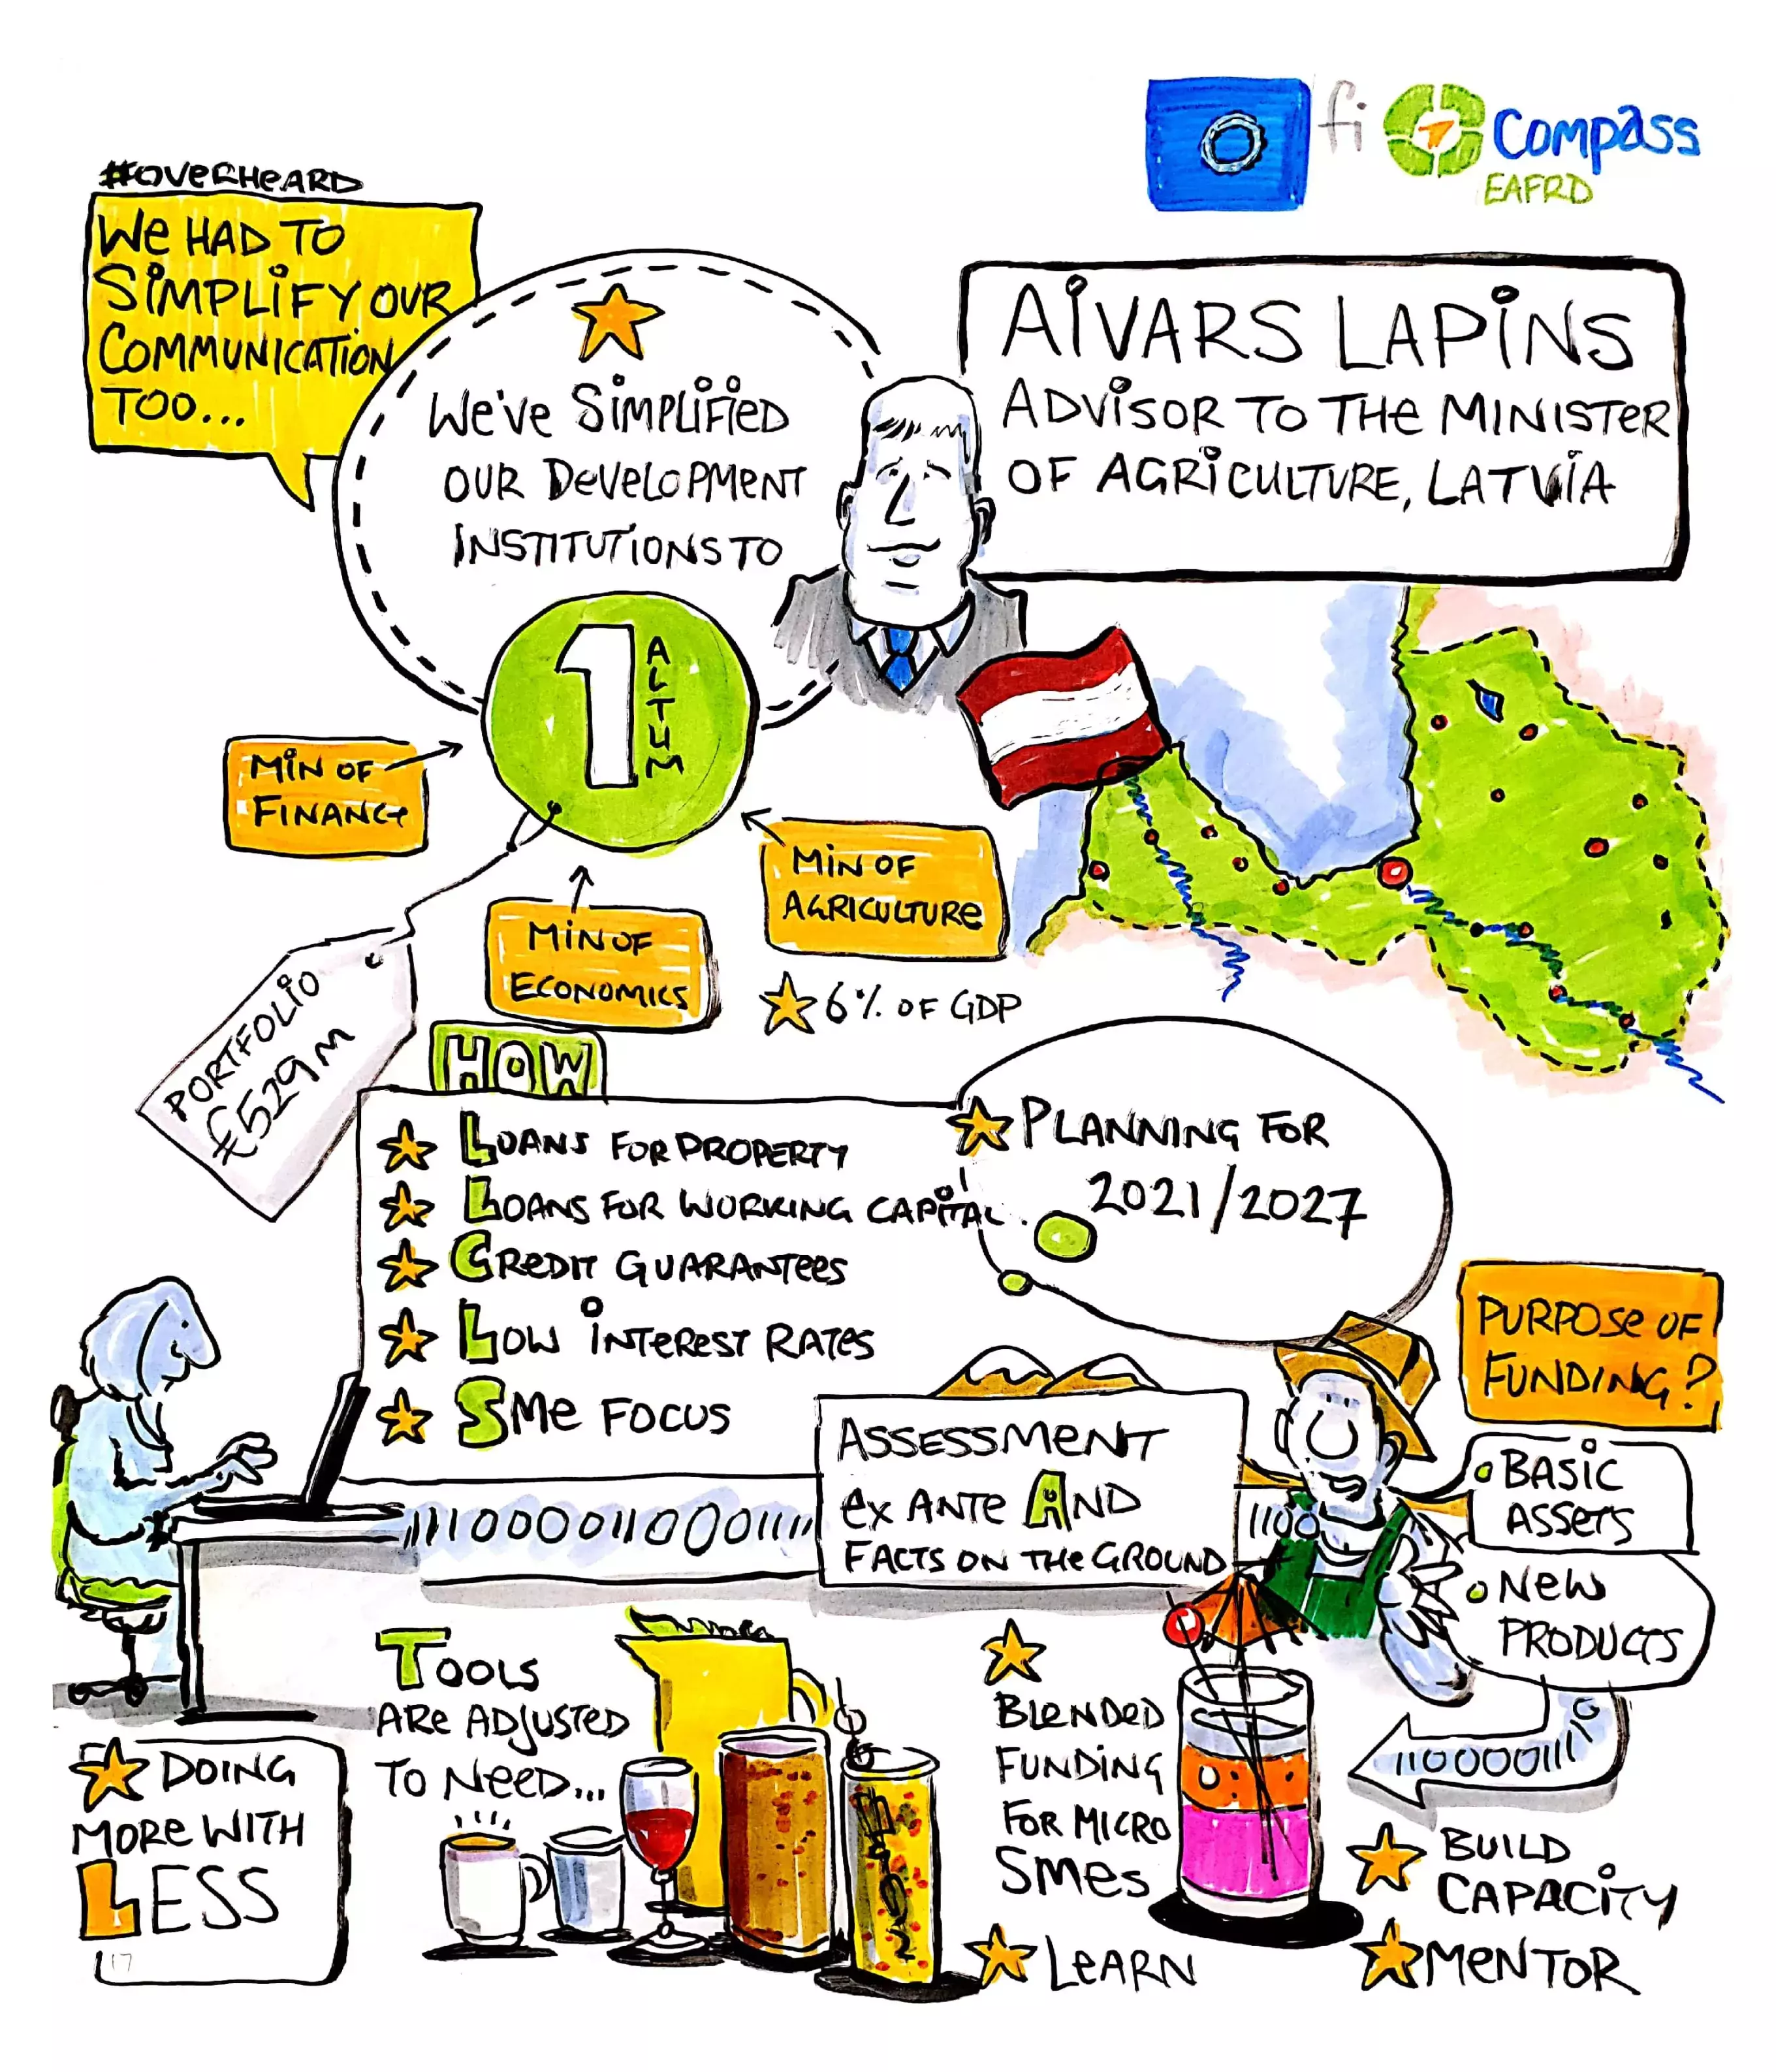 fi Compass
EAFRD
#OVERHEARD
We HAD TO
SiMPLiFY OUR
COMMUNICATION
TOO...
We've SiMPLiFieD
OUR DeveLOPMeNT
iNSTITUTiONS TO
1 ALTUM
AiVARS LAPiNS
ADViSOR TO THe MINiSTeR
OF AGRiCULTURE, LATViA
MiN OF
FINANCe
MiN OF
AGRICULTURe
MiN OF
ECONOMiCS
6% OF GDP
PORTFOLiO
£529M
HOW
LOANS FOR PROPERTY
LOANS FOR WORKING CAPiTAL.
CReDIT GUARANTees
LOW iNTeReST RATes
SMe FOCUS
PLANNING FOR
2021/2027
PURPOSe OF
FUNDING?
BASiC
ASSeTS
NeW
PRODUCTS
ASSESSMeNT
ex ANTe AND
FACTS ON THe GROUND
111100001100011111
1100
TOOLS
ARe ADJUSTED
TO NeeD...
DOING
MORe WITH
LESS
17
BLeNDeD
FUNDiNG
FOR MiCRO
SMes
LeARN
11000011110
BUILD
CAPACiTY
MeNTOR